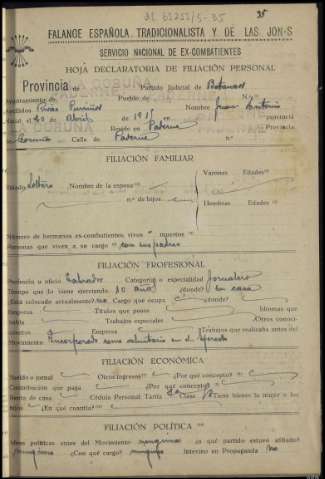 35
FALANGE ESPAÑOLA TRADICIONALISTA Y DE LAS JON-S
SERVICIO NACIONAL DE EX-COMBATIENTES
HOJA DECLARATORIA DE FILIACIÓN PERSONAL
Provincia de Partido Judicial de Betanzos
Ayuntamiento de Pueblo de Nombre Juan Antonio
Apellidos Rivas
el 20 de Abril de 19 parroquia
Reside en Paderne Provincia
Coruña Calle de Paderne n.º
FILIACIÓN FAMILIAR
Estado soltero Nombre de la esposa Varones Edades
n.º de hijos Hembras Edades
Número de hermanos ex-combatientes, vivos muertos
Personas que viven a su cargo con sus padres
FILIACIÓN PROFESIONAL
Profesión u oficio Labrador Categoría o especialidad Jornalero
Tiempo que lo viene ejerciendo 10 años ¿dónde? En casa
¿Está colocado actualmente? no Cargo que ocupa ¿dónde?
Empresa Títulos que posee Idiomas que
habla Trabajos especiales Otros conoci-
mientos Trabajos que realizaba antes del
Movimiento Incorporado como voluntario en el Ejército
FILIACIÓN ECONÓMICA
Sueldo o jornal Otros ingresos ¿Por qué conceptos?
Contribución que paga ¿Por qué conceptos?
Renta de casa Cédula Personal Tarifa Clase ¿Tiene bienes la mujer o los
hijos ¿En qué cuantía?
FILIACIÓN POLÍTICA
Ideas políticas antes del Movimiento ninguna ¿a qué partido estuvo afiliado?
ninguno ¿Con qué cargo? ninguno Intervino en Propaganda No